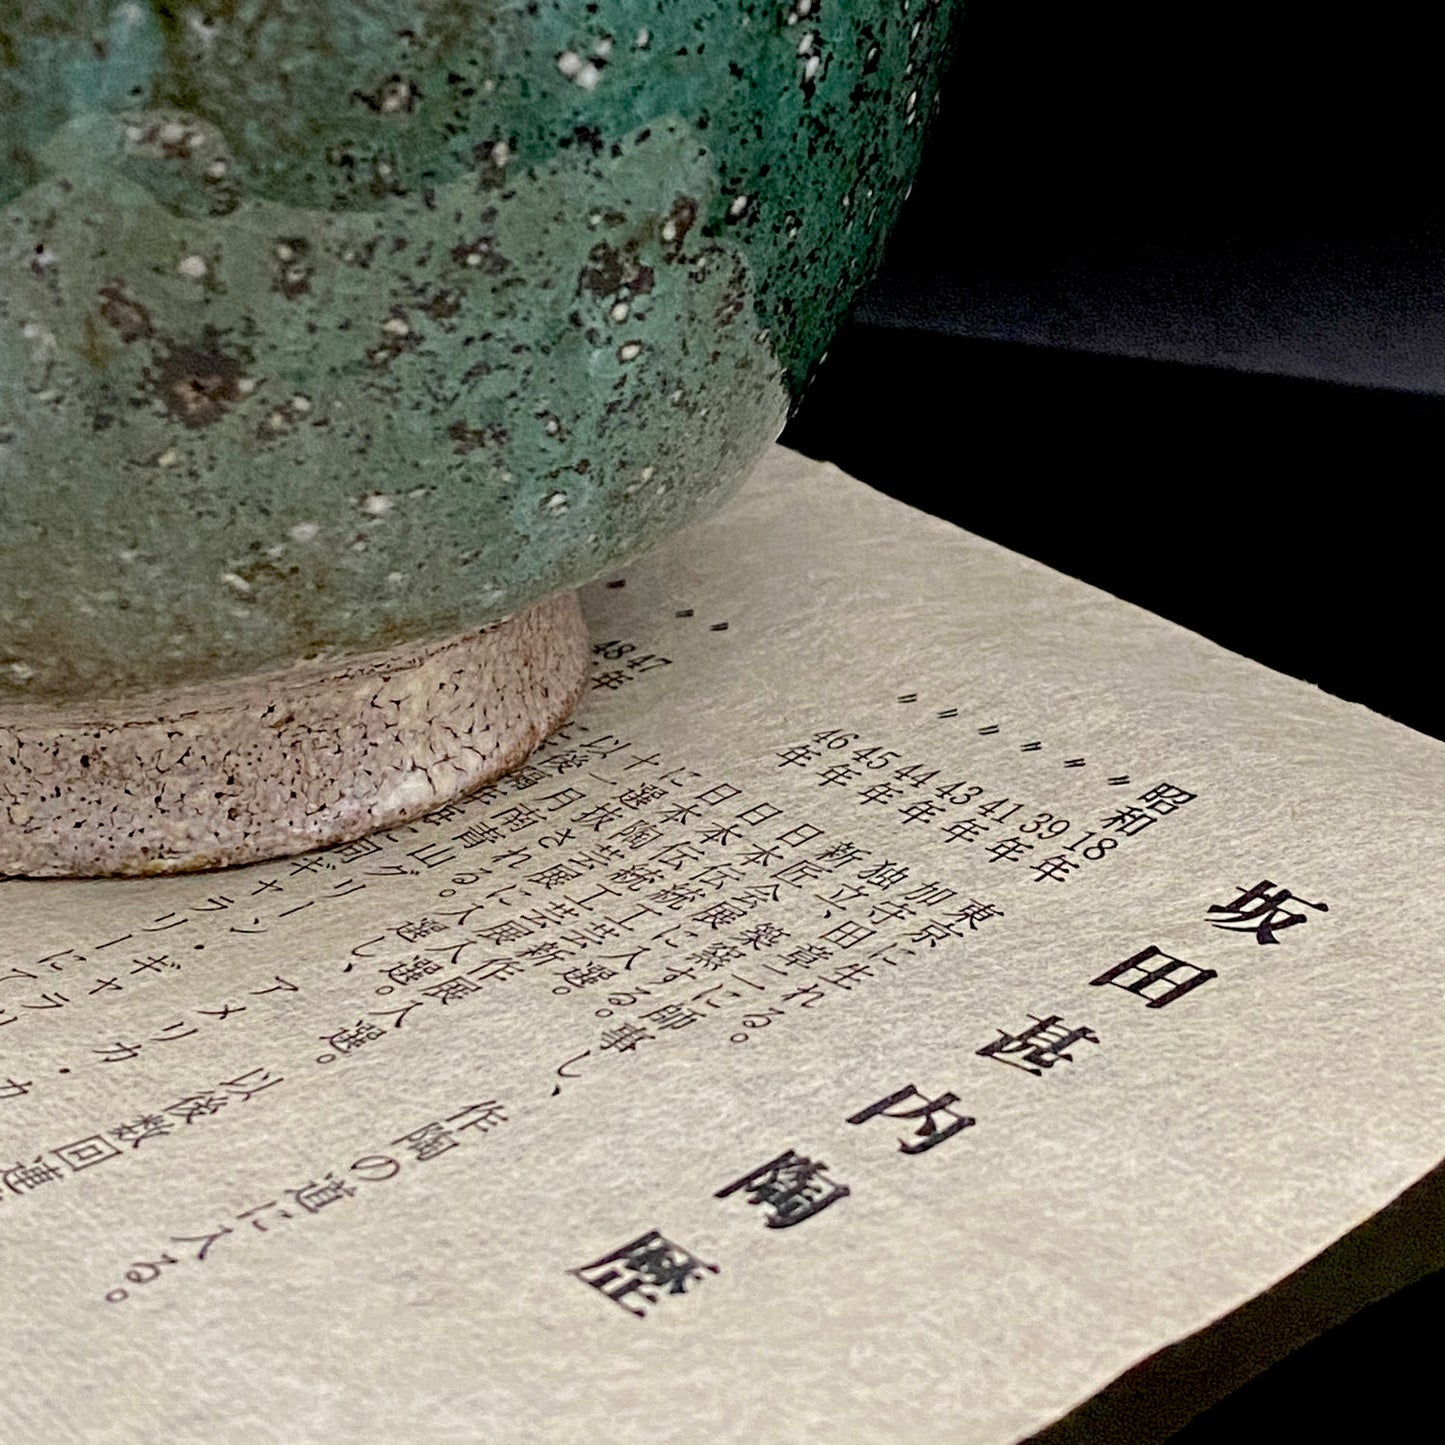 坂田甚内陶歴
昭和18年 東京に生れる。
〃39年 加守田章二に師事し、作陶の道に入る。
〃41年 独立、築窯する。
〃43年 新匠会展に入選。
〃44年 日本伝統工芸新作展入選。以後数回連
〃45年 日本伝統工芸展入選。
〃46年 日本陶芸展に入選し、アメリカ・カ
に選抜される。
〃47 十一月南青山グリーン・ギャラリ
以後同ギャラリーにて
〃48年